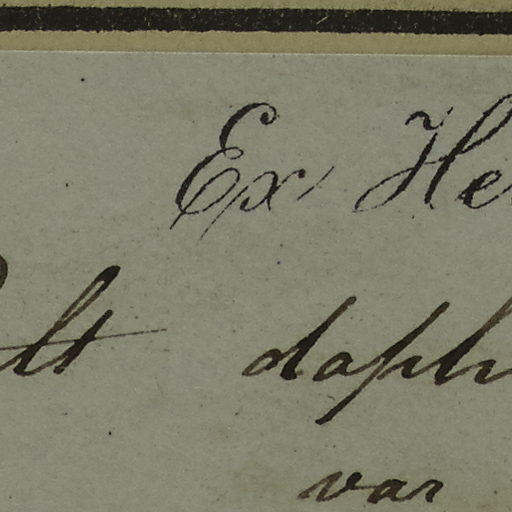 Ex He
lt daph
var